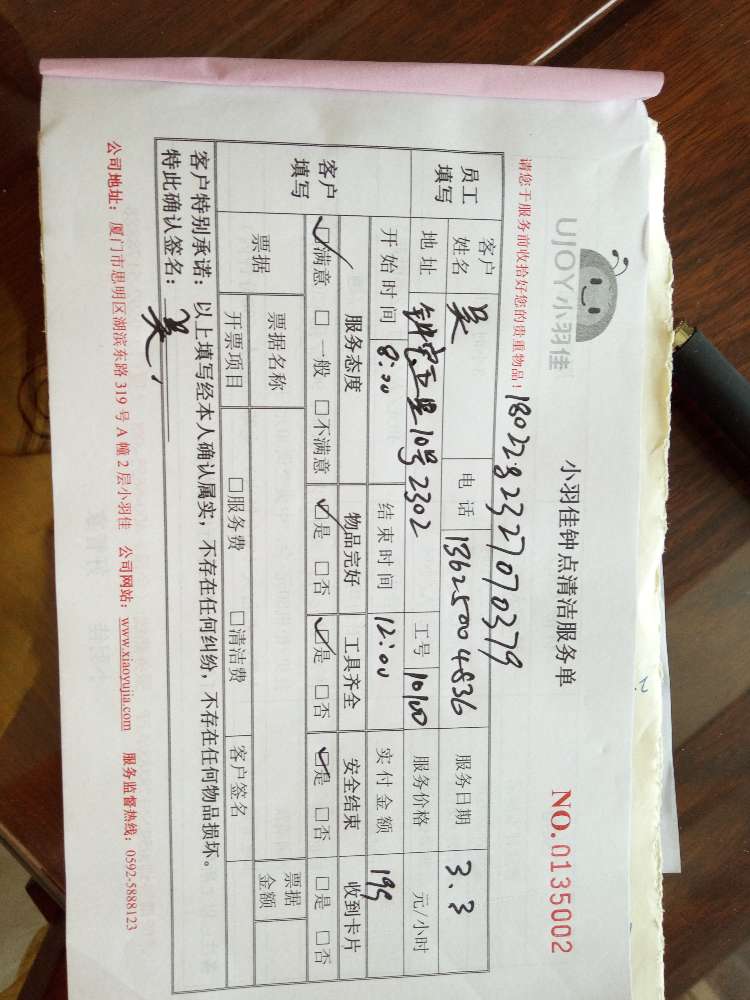 UJOY小羽佳
小羽佳钟点清洁服务单
NO. 0135002
请您于服务前收拾好您的贵重物品！
180228232707 0379
员工填写 客户姓名 吴 电话 13625004836 服务日期 3.3
地址 10号2302 工号 10100 服务价格 元/小时
开始时间 8:00 结束时间 12:00 实付金额 199
客户填写 服务态度 物品完好 工具齐全 安全结束 收到卡片
☑满意 □一般 □不满意 ☑是 □否 ☑是 □否 ☑是 □否 □是 □否
票据 票据名称 票据金额
开票项目 □服务费 □清洁费 客户签名
客户特别承诺：以上填写经本人确认属实，不存在任何纠纷，不存在任何物品损坏。
特此确认签名：吴
公司地址：厦门市思明区湖滨东路 319 号 A 幢 2 层小羽佳 公司网站：www.xiaoyujia.com 服务监督热线：0592-5888123